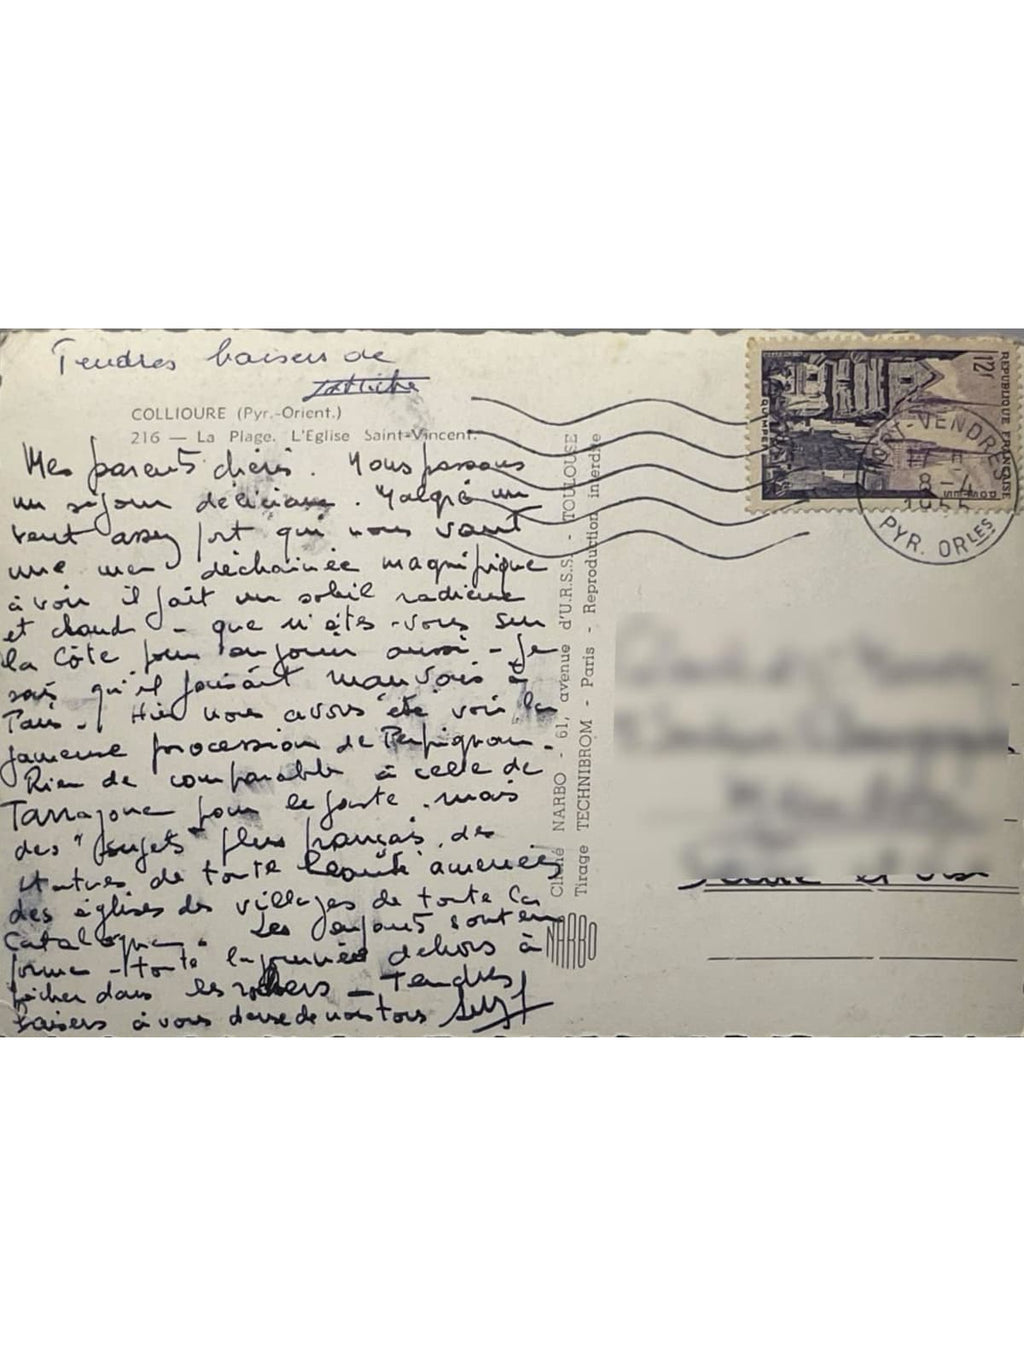 Tendres baisers de
COLLIOURE (Pyr.-Orient.)
216 — La Plage. L'Eglise Saint-Vincent.
Mes parents chéris. Nous passons
un séjour délicieux. Malgré un
vent assez fort qui nous vaut
une mer déchainée magnifique
à voir il fait un soleil radieux
et chaud - que n'êtes-vous sur
la Côte pour en jouir aussi - Je
sais qu'il faisait mauvais à
Paris. Hier nous avons été voir la
fameuse procession de Perpignan.
Rien de comparable à celle de
Tarragone pour le faste. mais
des "sujets" plus français, des
statues de toute beauté amenées
des églises des villages de toute la
Catalogne. Les enfants sont en
forme - toute la journée dehors à
pêcher dans les rochers - Tendres
baisers à vous deux de nous tous
Cliché NARBO - 61, avenue d'U.R.S.S. - TOULOUSE
Tirage TECHNIBROM - Paris - Reproduction interdite
NARBO
REPUBLIQUE FRANÇAISE
12f
QUIMPER
POSTES
PORT-VENDRES
8-4
1955
PYR. ORLES